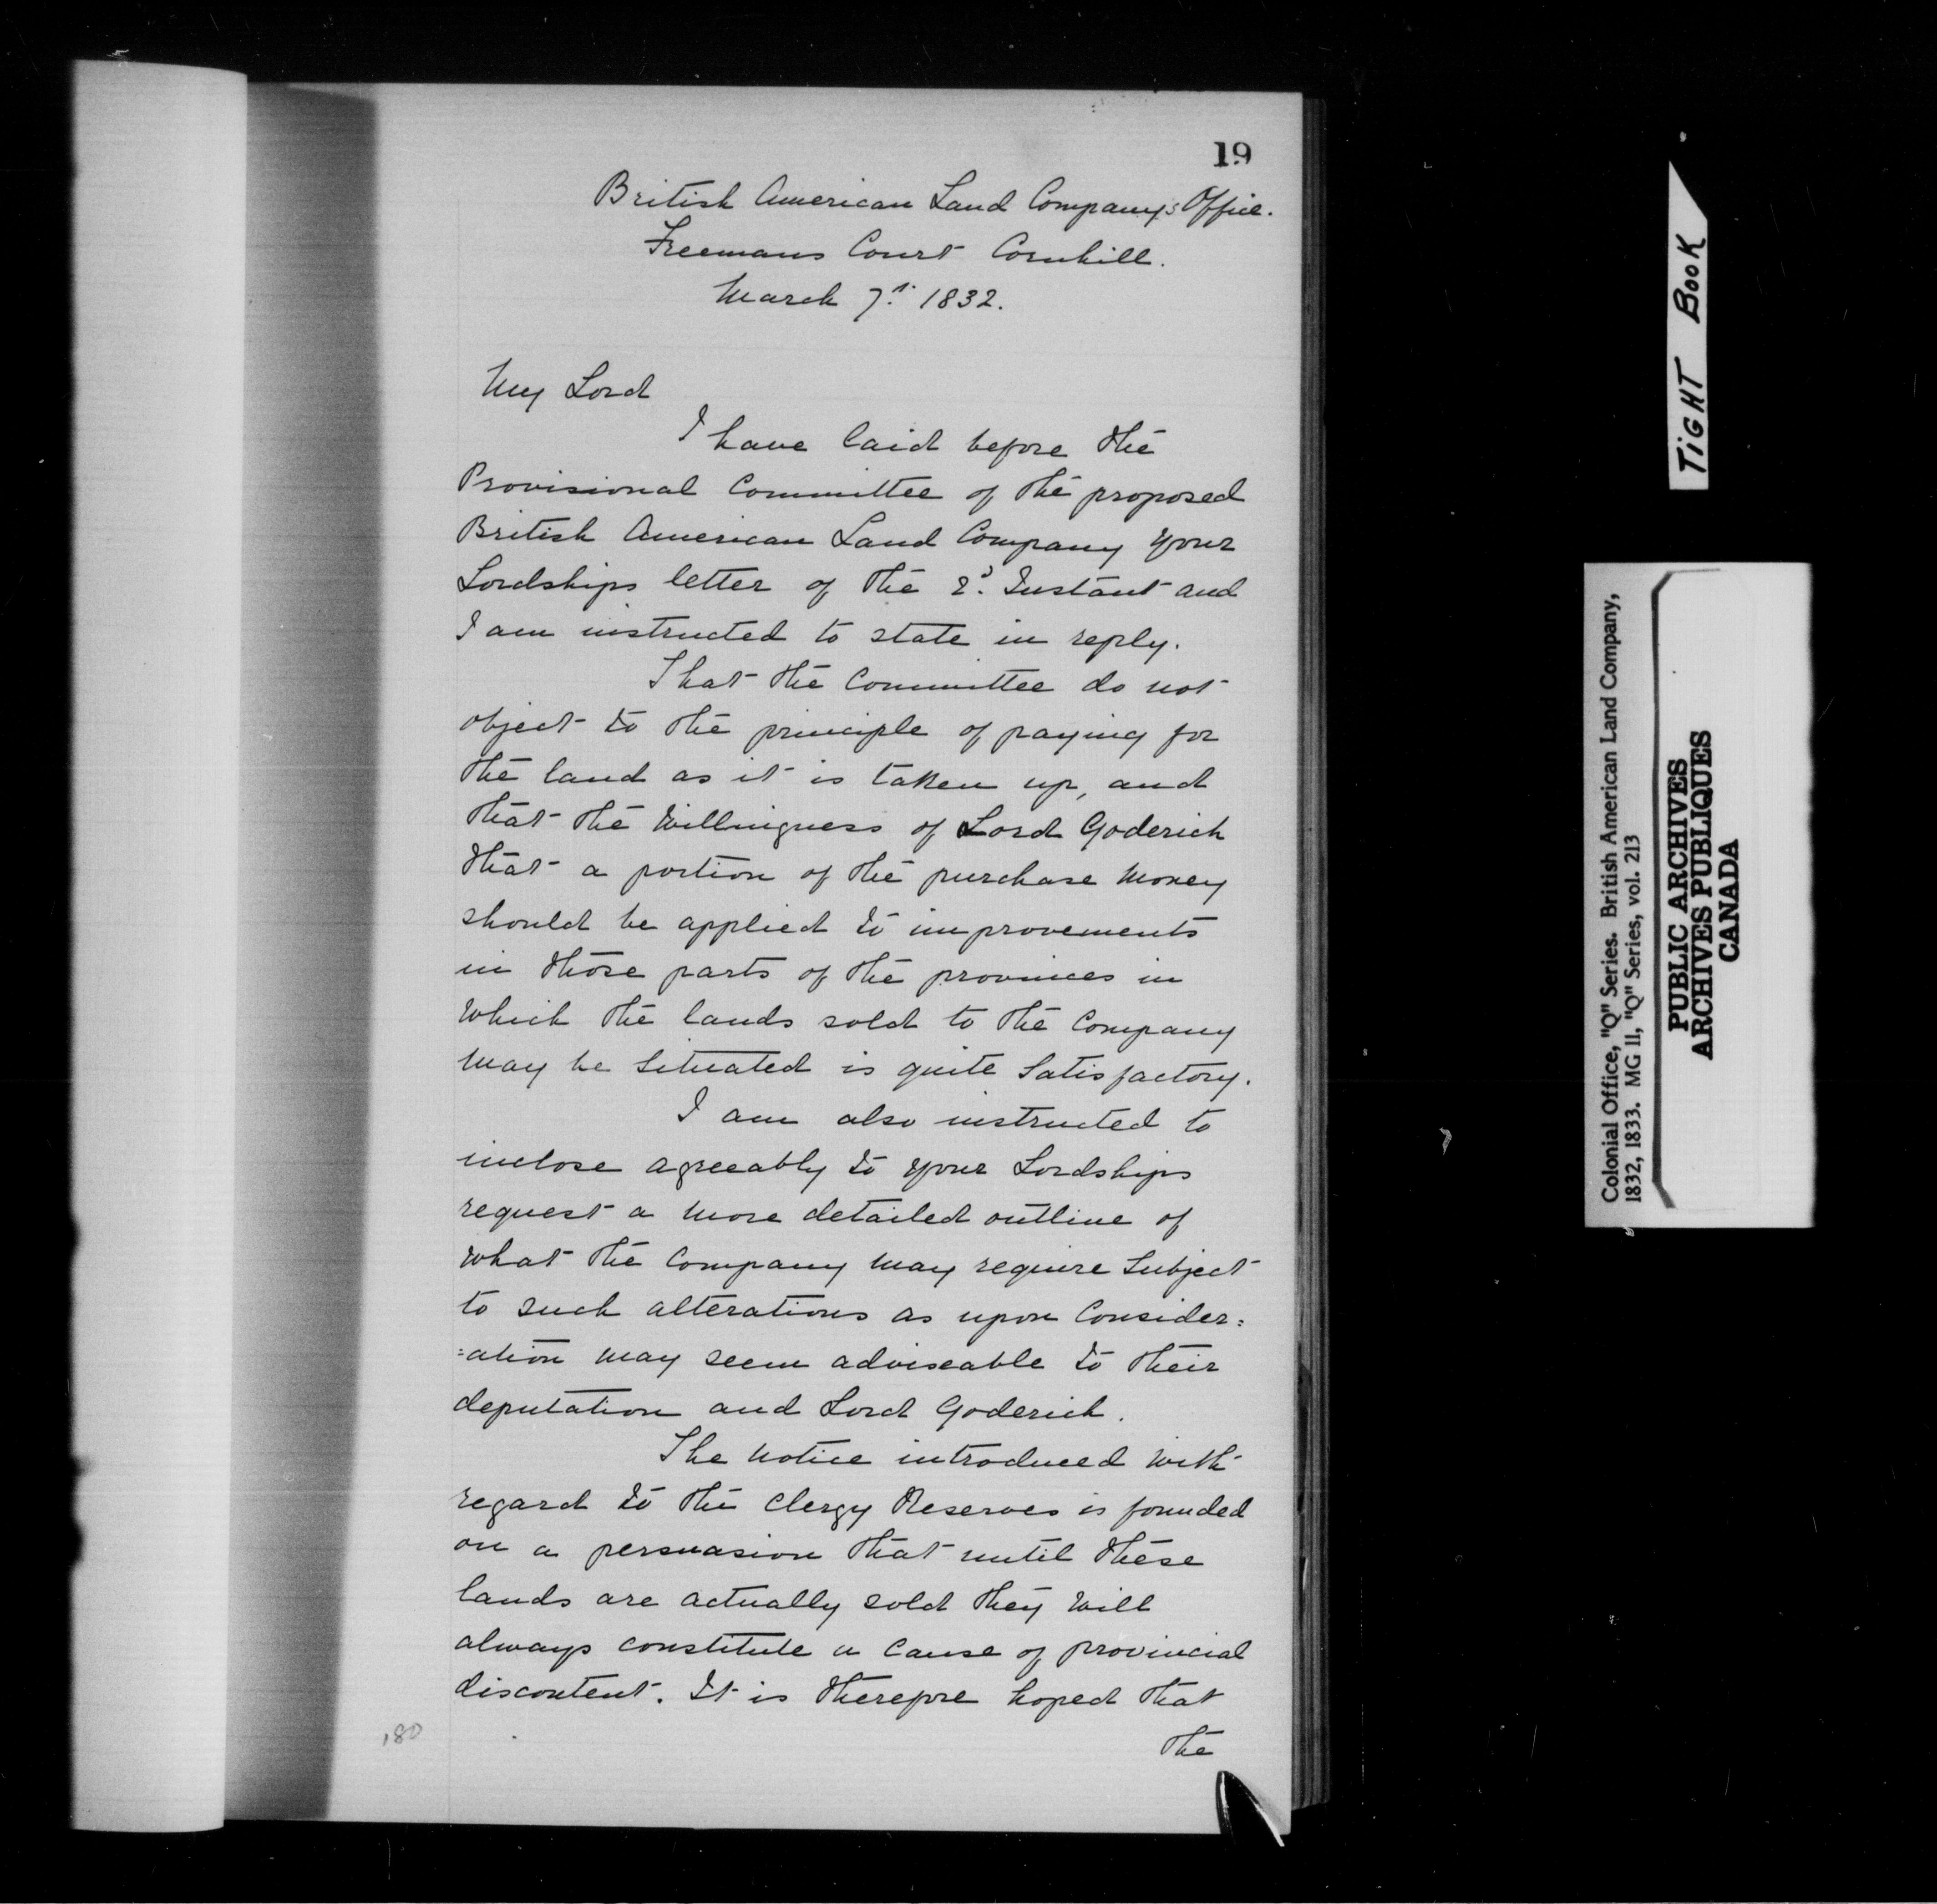 19
British American Land Company's Office.
Freemans Court Cornhill.
March 7th 1832.
My Lord
I have laid before the
Provisional Committee of the proposed
British American Land Company your
Lordships letter of the 2d. Instant and
I am instructed to state in reply.
That the Committee do not
object to the principle of paying for
the land as it is taken up, and
that the Willingness of Lord Goderich
that a portion of the purchase money
should be applied to improvements
in those parts of the provinces in
which the lands sold to the Company
may be situated is quite satisfactory.
I am also instructed to
inclose agreeably to your Lordships
request a more detailed outline of
what the Company may require subject
to such alterations as upon Consider=
=ation may seem adviseable to their
deputation and Lord Goderich.
The notice introduced with
regard to the Clergy Reserves is founded
on a persuasion that until these
lands are actually sold they will
always constitute a cause of provincial
discontent. It is therefore hoped that
the
180
TIGHT BOOK
Colonial Office, "Q" Series. British American Land Company,
1832, 1833. MG 11, "Q" Series, vol. 213
PUBLIC ARCHIVES
ARCHIVES PUBLIQUES
CANADA